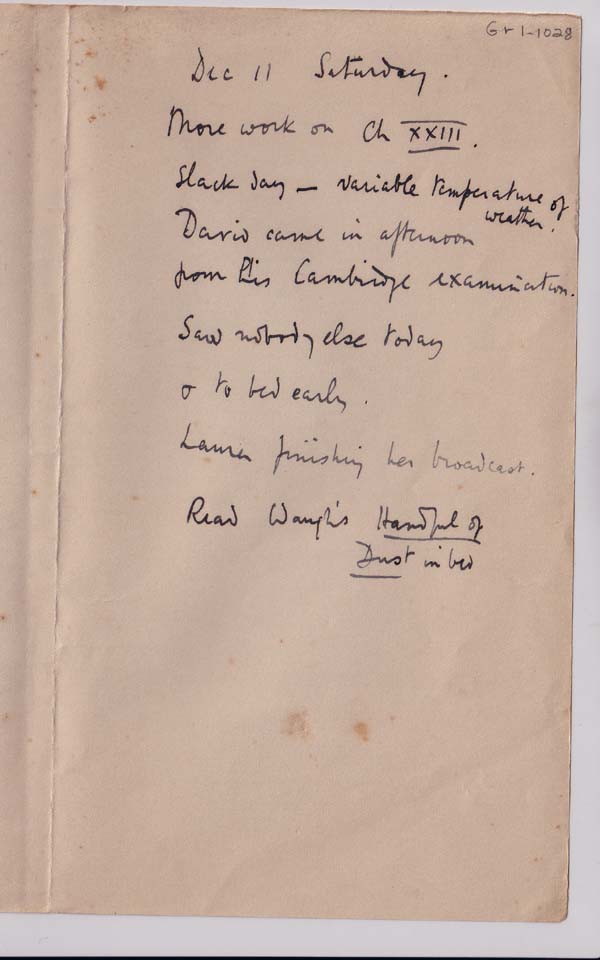 Gr 1-1028
Dec 11 Saturday.
More work on Ch XXIII.
Slack day – variable temperature of
weather.
David came in afternoon
from his Cambridge examination.
Saw nobody else today
& to bed early.
Laura finishing her broadcast.
Read Waugh's Handful of
Dust in bed